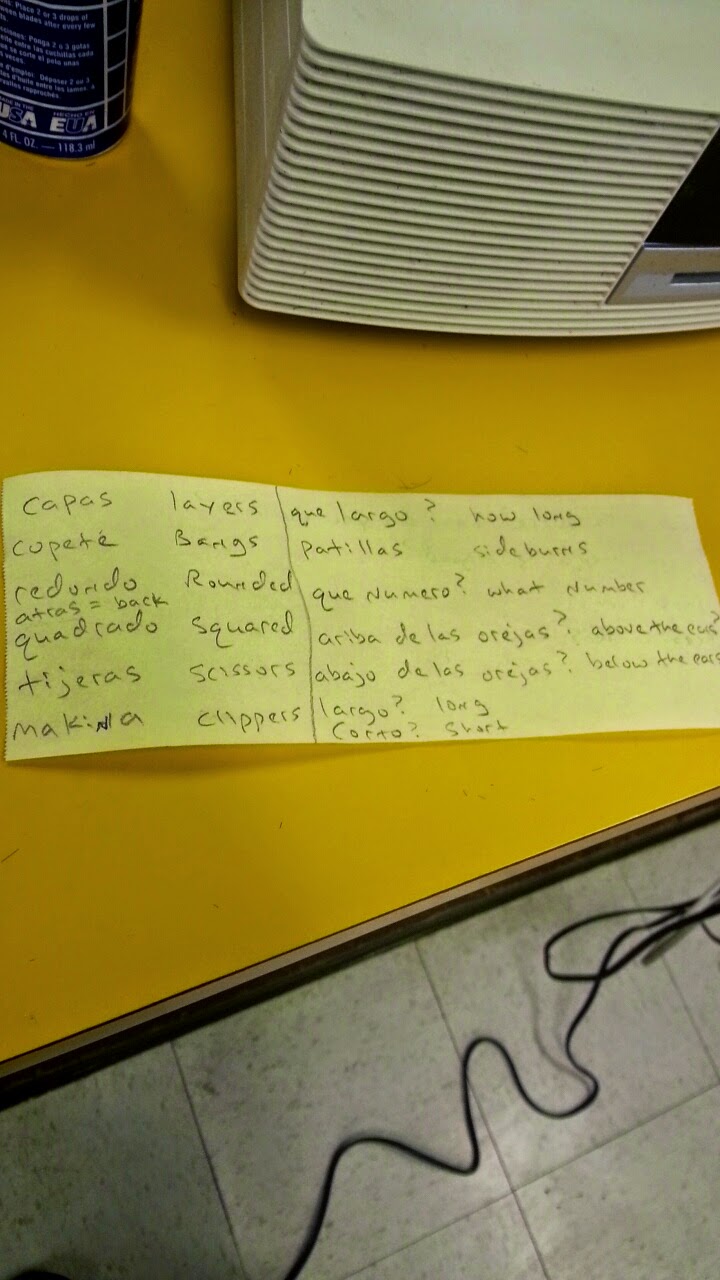 Place 2 or 3 drops of
after every few
Ponga 2 o 3 gotas
entre las cuchillas cada
Déposer 2 ou 3
entre les lames, à
rapprochés.
MADE IN THE HECHO EN
USA EUA
4 FL. OZ. — 118.3 ml
capas layers
copete Bangs
redondo Rounded
atras = back
quadrado squared
tijeras scissors
makina clippers
que largo? how long
patillas sideburns
que Numero? what Number
ariba de las orejas? above the ears?
abajo de las orejas? below the ears
largo? long
Corto? Short